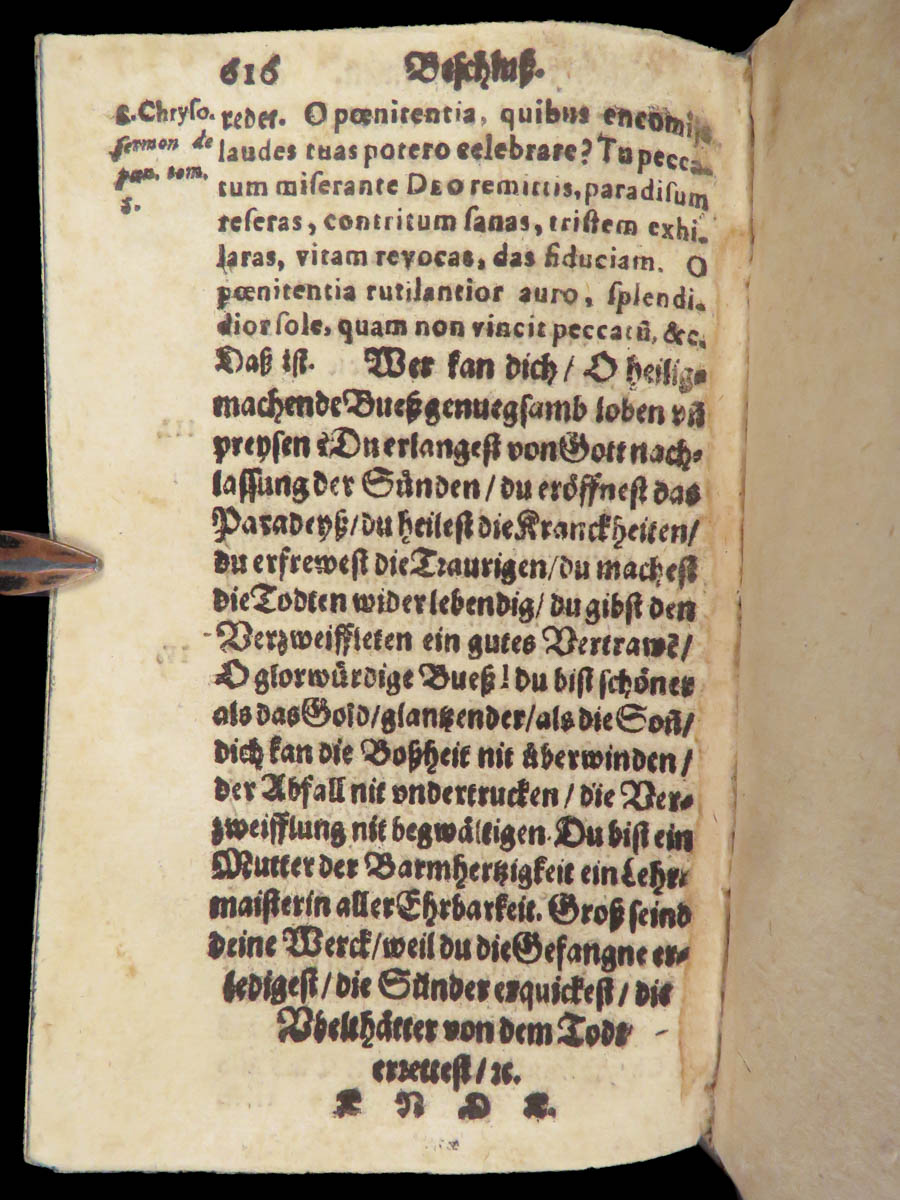 616 Beschluß.
S. Chryso.
sermon de
pœn. tom.
5.
redet. O pœnitentia, quibus encomijs
laudes tuas potero celebrare? Tu pecca-
tum miserante DEO remittis, paradisum
reseras, contritum sanas, tristem exhi-
laras, vitam revocas, das fiduciam. O
pœnitentia rutilantior auro, splendi-
dior sole, quam non vincit peccatũ, &c.
Daß ist. Wer kan dich / O heilig-
machende Bueß genuegsamb loben vñ
preysen? Du erlangest von Gott nach-
lassung der Sünden / du eröffnest das
Paradeyß / du heilest die Kranckheiten /
du erfrewest die Traurigen / du machest
die Todten wider lebendig / du gibst den
Verzweiffleten ein gutes Vertrawẽ /
O glorwürdige Bueß! du bist schöner
als das Gold / glantzender / als die Soñ /
dich kan die Boßheit nit überwinden /
der Abfall nit vndertrucken / die Ver-
zweifflung nit begwältigen. Du bist ein
Mutter der Barmhertzigkeit ein Lehr-
maisterin aller Ehrbarkeit. Groß seind
deine Werck / weil du die Gefangne er-
ledigest / die Sünder erquickest / die
Vbelthätter von dem Todt
errettest / ꝛc.
E N D E.